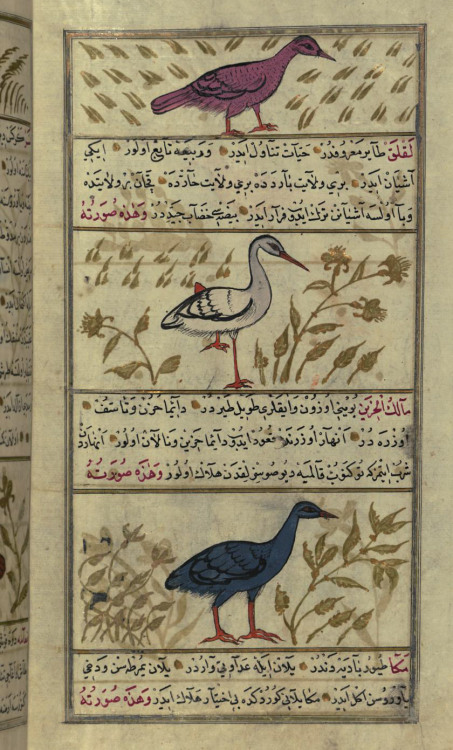 لقلق طایر معروفدر حیات تناول ایدر و ربیعه تابع اولور ایکی
آشیان ایدر بری ولایت بارددە بری ولایت حاردە قچان بر ولایتدە
وبا اولسه آشیانی ترك ایدوب فرار ایدر بیضسی خضاب جیددر وهذه صورته
مالك الحزین بوینی اوزون و ایقلری طویل طیردر دائما حزن و تاسف
اوزره در انهار اوزرنده قعود ایدوب دائما حزین و نالان اولور انهاردن
شرب ایتمز که توکنوب قالمیه دیو صوسزلقدن هلاك اولور وهذه صورته
مکا طیور بادیه دندر یلان ایله عداوتی واردر یلان یمرطه سن ودخی
یاوروسن اکل ایدر مکا یلانی کوردکده بی اختیار هلاك ایدر وهذه صورته